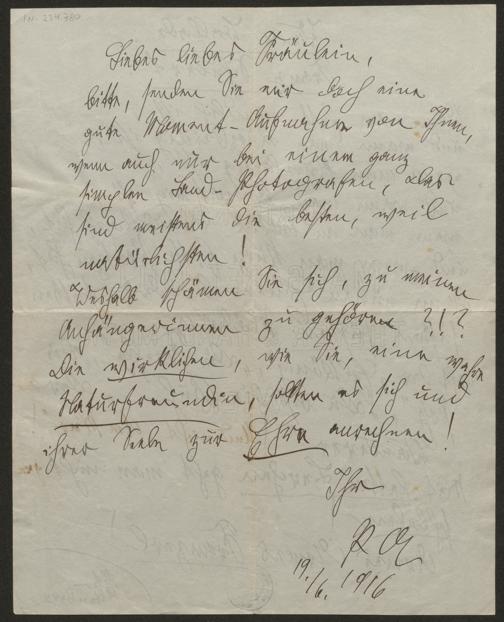 IN-224.780
Liebes liebes Fräulein,
bitte, senden Sie mir doch eine
gute Moment-Aufnahme von Ihnen,
wenn auch nur bei einem ganz
simplen Land-Photografen, das
sind meistens die besten, weil
natürlichsten!
Weshalb schämen Sie sich, zu meinen
Anhängerinnen zu gehören?!?
Die wirklichen, wie Sie, eine wahre
Naturfreundin, sollten es sich und
ihrer Seele zur Ehre anrechnen!
Ihr
PA
19./6. 1916